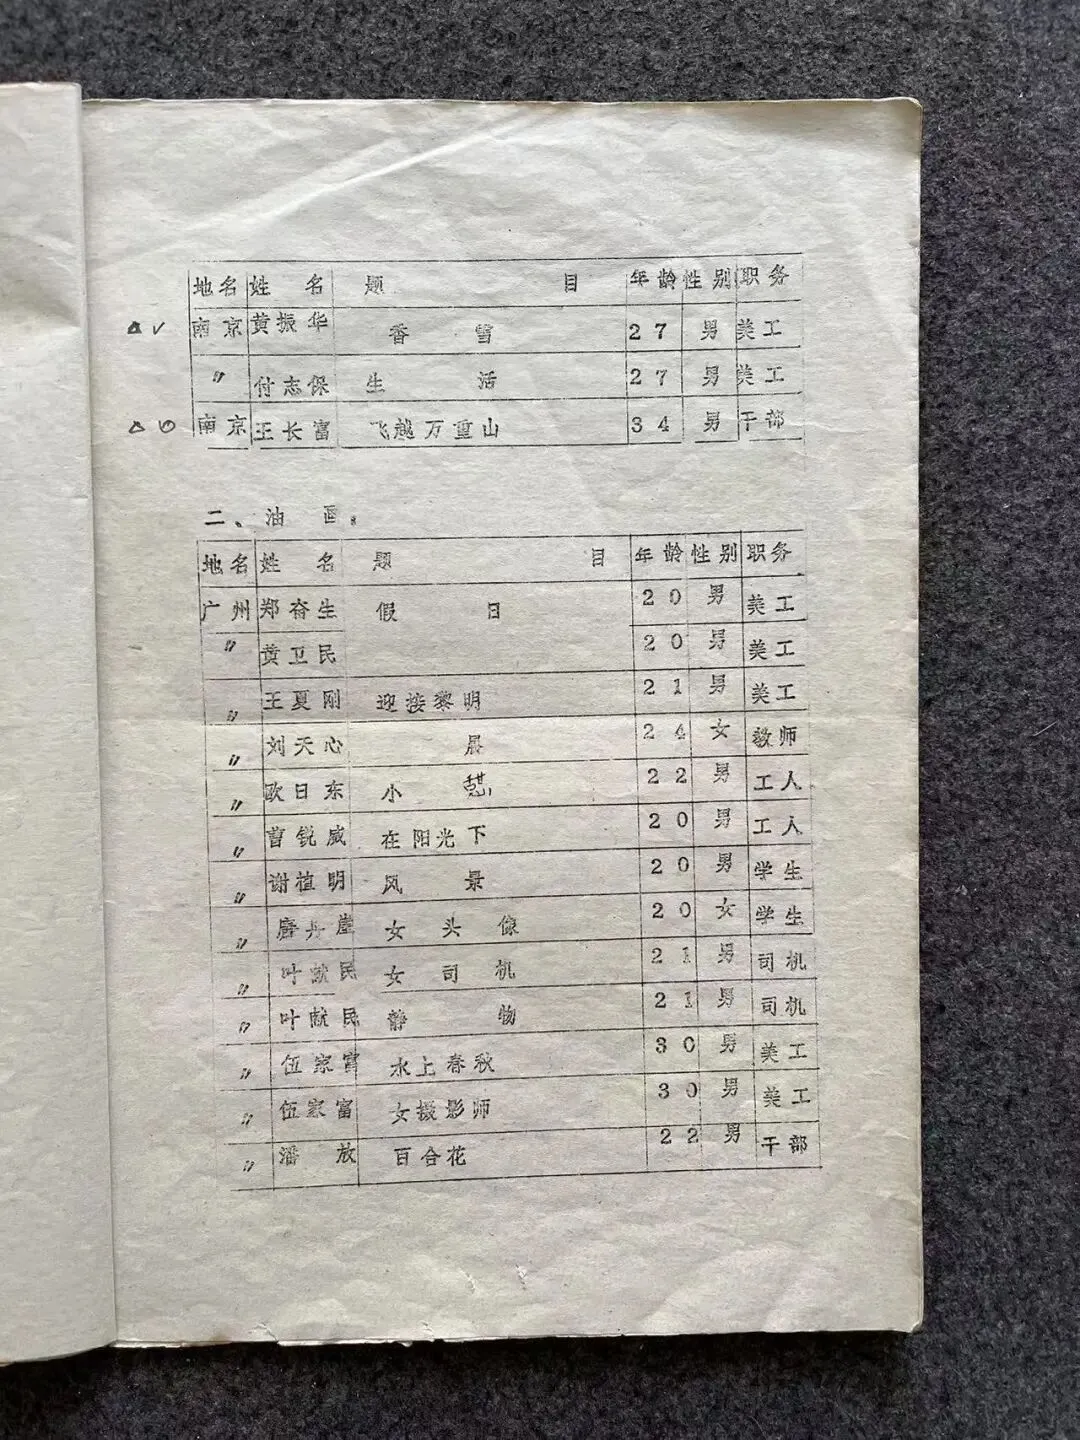 地名 姓名 题目 年龄 性别 职务
南京 黄振华 香雪 27 男 美工
〃 付志保 生活 27 男 美工
南京 王长富 飞越万重山 34 男 干部
二、油画:
地名 姓名 题目 年龄 性别 职务
广州 郑奋生 假日 20 男 美工
〃 黄卫民 20 男 美工
〃 王夏刚 迎接黎明 21 男 美工
〃 刘天心 晨 24 女 教师
〃 欧日东 小憩 22 男 工人
〃 曹锐威 在阳光下 20 男 工人
〃 谢植明 风景 20 男 学生
〃 唐丹崖 女头像 20 女 学生
〃 叶献民 女司机 21 男 司机
〃 叶献民 静物 21 男 司机
〃 伍家富 水上春秋 30 男 美工
〃 伍家富 女摄影师 30 男 美工
〃 潘放 百合花 22 男 干部